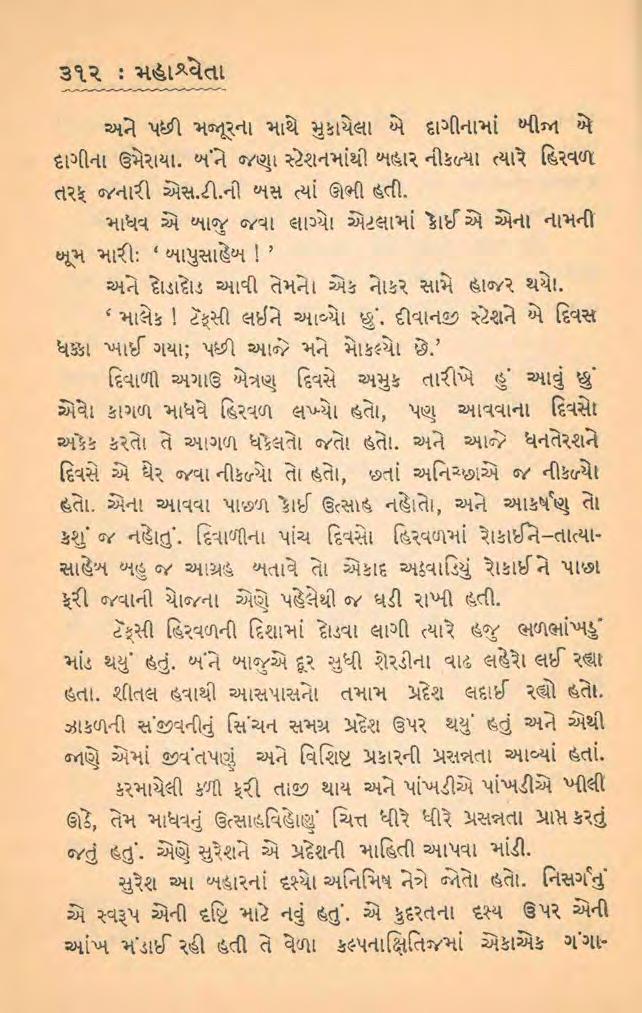 ૩૧૨ : મહાશ્વેતા
અને પછી મજૂરના માથે મુકાયેલા બે દાગીનામાં બીજા બે
દાગીના ઉમેરાયા. બંને જણા સ્ટેશનમાંથી બહાર નીકળ્યા ત્યારે હિરવળ
તરફ જનારી એસ.ટી.ની બસ ત્યાં ઊભી હતી.
માધવ એ બાજુ જવા લાગ્યો એટલામાં કોઈ એ એના નામની
બૂમ મારી: ‘ બાપુસાહેબ ! ’
અને દોડાદોડ આવી તેમનો એક નોકર સામે હાજર થયો.
‘ માલેક ! ટૅક્સી લઈને આવ્યો છું. દીવાનજી સ્ટેશને બે દિવસ
ધક્કા ખાઈ ગયા; પછી આજે મને મોકલ્યો છે.’
દિવાળી અગાઉ બેત્રણ દિવસે અમુક તારીખે હું આવું છું
એવો કાગળ માધવે હિરવળ લખ્યો હતો, પણ આવવાના દિવસો
અકેક કરતો તે આગળ ધકેલતો જતો હતો. અને આજે ધનતેરશને
દિવસે એ ઘેર જવા નીકળ્યો તો હતો, છતાં અનિચ્છાએ જ નીકળ્યો
હતો. એના આવવા પાછળ કોઈ ઉત્સાહ નહોતો, અને આકર્ષણ તો
કશું જ નહોતું. દિવાળીના પાંચ દિવસો હિરવળમાં રોકાઈને–તાત્યા-
સાહેબ બહુ જ આગ્રહ બતાવે તો એકાદ અઠવાડિયું રોકાઈ ને પાછા
ફરી જવાની યોજના એણે પહેલેથી જ ઘડી રાખી હતી.
ટૅક્સી હિરવળની દિશામાં દોડવા લાગી ત્યારે હજુ ભળભાંખડું
માંડ થયું હતું. બંને બાજુએ દૂર સુધી શેરડીના વાઢ લહેરો લઈ રહ્યા
હતા. શીતલ હવાથી આસપાસનો તમામ પ્રદેશ લદાઈ રહ્યો હતો.
ઝાકળની સંજીવનીનું સિંચન સમગ્ર પ્રદેશ ઉપર થયું હતું અને એથી
જાણે એમાં જીવંતપણું અને વિશિષ્ટ પ્રકારની પ્રસન્નતા આવ્યાં હતાં.
કરમાયેલી કળી ફરી તાજી થાય અને પાંખડીએ પાંખડીએ ખીલી
ઊઠે, તેમ માધવનું ઉત્સાહવિહોણું ચિત્ત ધીરે ધીરે પ્રસન્નતા પ્રાપ્ત કરતું
જતું હતું. એણે સુરેશને એ પ્રદેશની માહિતી આપવા માંડી.
સુરેશ આ બહારનાં દશ્યો અનિમિષ નેત્રે જોતો હતો. નિસર્ગનું
એ સ્વરૂપ એની દષ્ટિ માટે નવું હતું. એ કુદરતના દશ્ય ઉપર એની
આંખ મંડાઈ રહી હતી તે વેળા કલ્પનાક્ષિતિજમાં એકાએક ગંગા-